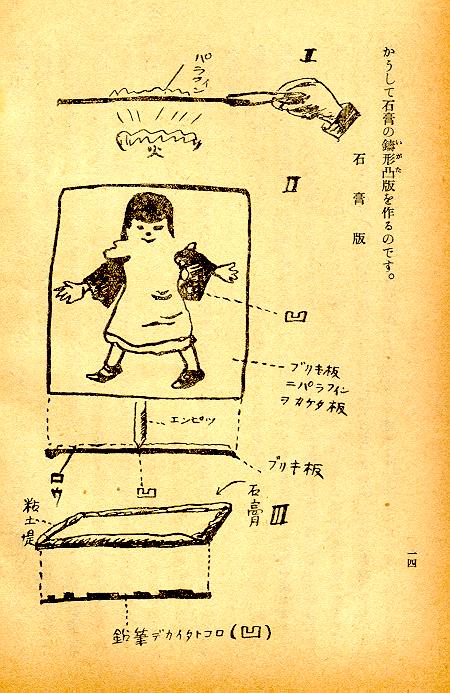 かうして石膏の鑄形凸版を作るのです。
いがた
石膏版
I
パラフィン
火
II
凹
ブリキ板
ニパラフィン
ヲカケタ板
エンピツ
ロウ
凹
ブリキ板
III
石膏
粘土堤
鉛筆デカイタトコロ(凹)
一四